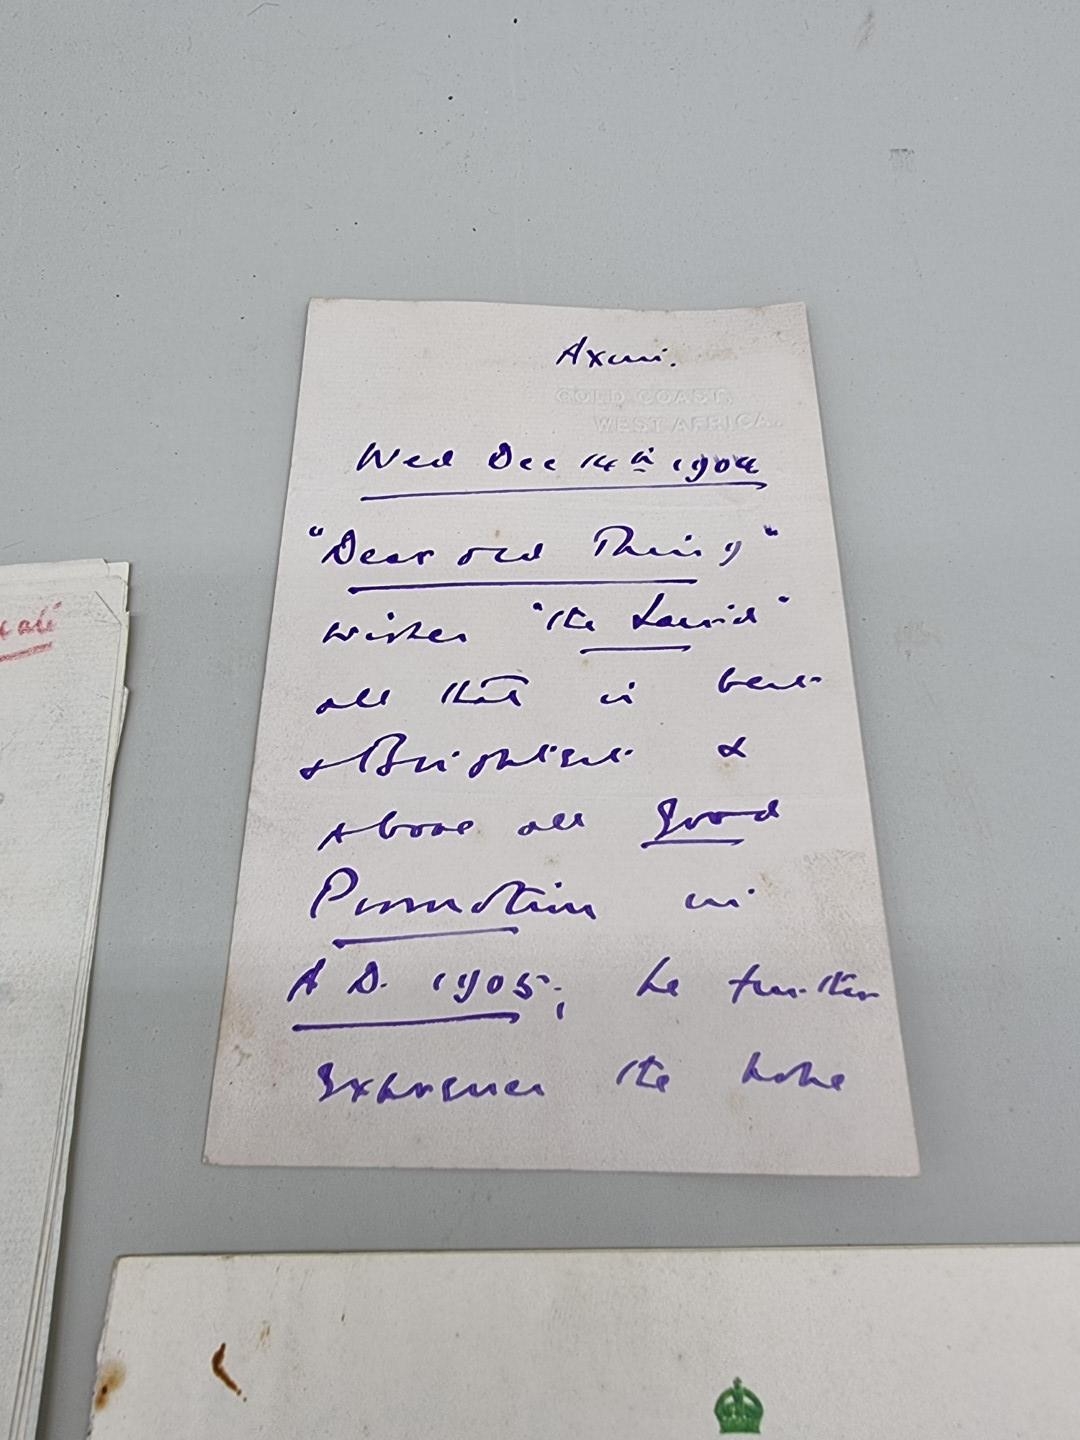 Axim.
GOLD COAST,
WEST AFRICA.
Wed Dec 14th 1904
"Dear old Thing"
wishes "the Laird"
all that is best
& Brightest &
above all good
Promotion in
A.D. 1905; he further
expresses the hope